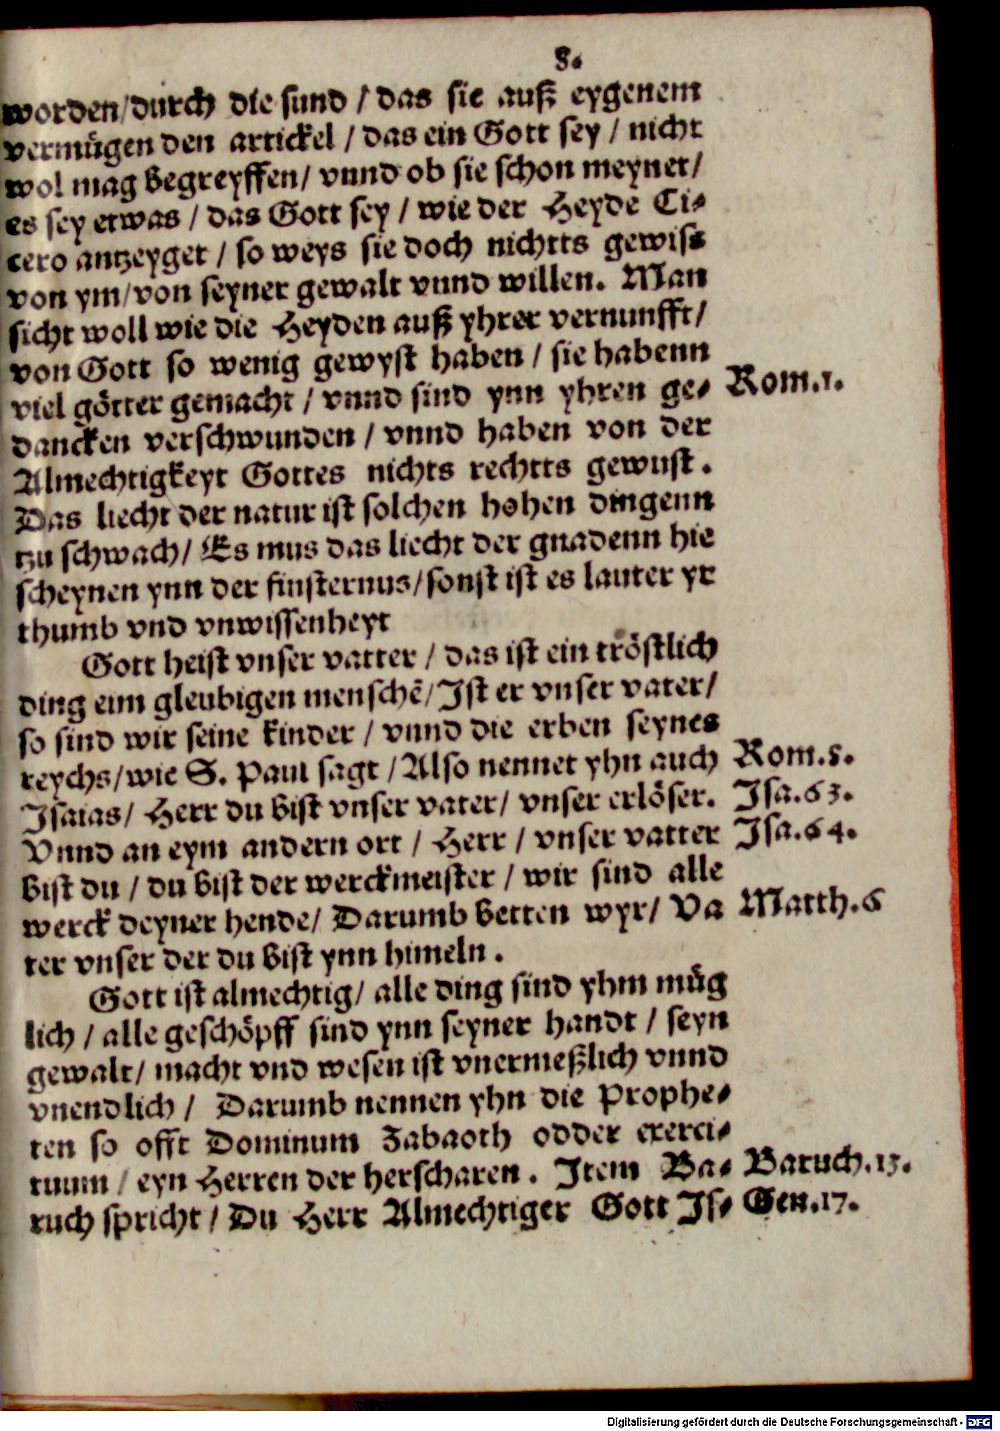 8.
worden/durch die sund / das sie auß eygenem
vermügen den artickel / das ein Gott sey / nicht
wol mag begreyffen/ vnnd ob sie schon meynet/
es sey etwas / das Gott sey / wie der Heyde Ci-
cero antzeyget / so weys sie doch nichtts gewiss
von ym/von seyner gewalt vnnd willen. Man
sicht woll wie die Heyden auß yhrer vernunfft/
von Gott so wenig gewyst haben / sie habenn
viel götter gemacht / vnnd sind ynn yhren ge- Rom.1.
dancken verschwunden / vnnd haben von der
Almechtigkeyt Gottes nichts rechtts gewust.
Das liecht der natur ist solchen hohen dingenn
tzu schwach/ Es mus das liecht der gnadenn hie
scheynen ynn der finsternus/sonst ist es lauter yr
thumb vnd vnwissenheyt
Gott heist vnser vatter / das ist ein tröstlich
ding eim gleubigen menschē/Ist er vnser vater/
so sind wir seine kinder / vnnd die erben seynes
reychs/wie S. Paul sagt /Also nennet yhn auch Rom.8.
Isaias/ Herr du bist vnser vater/ vnser erlöser. Isa.63.
Vnnd an eym andern ort / Herr / vnser vatter Isa.64.
bist du / du bist der werckmeister / wir sind alle
werck deyner hende/ Darumb betten wyr/ Va Matth.6
ter vnser der du bist ynn himeln.
Gott ist almechtig/ alle ding sind yhm müg
lich / alle geschöpff sind ynn seyner handt / seyn
gewalt/ macht vnd wesen ist vnermeßlich vnnd
vnendlich / Darumb nennen yhn die Prophe-
ten so offt Dominum Zabaoth odder exerci-
tuum / eyn Herren der herscharen. Item Ba- Baruch.13.
ruch spricht / Du Herr Almechtiger Gott Is- Gen.17.
Digitalisierung gefördert durch die Deutsche Forschungsgemeinschaft - DFG